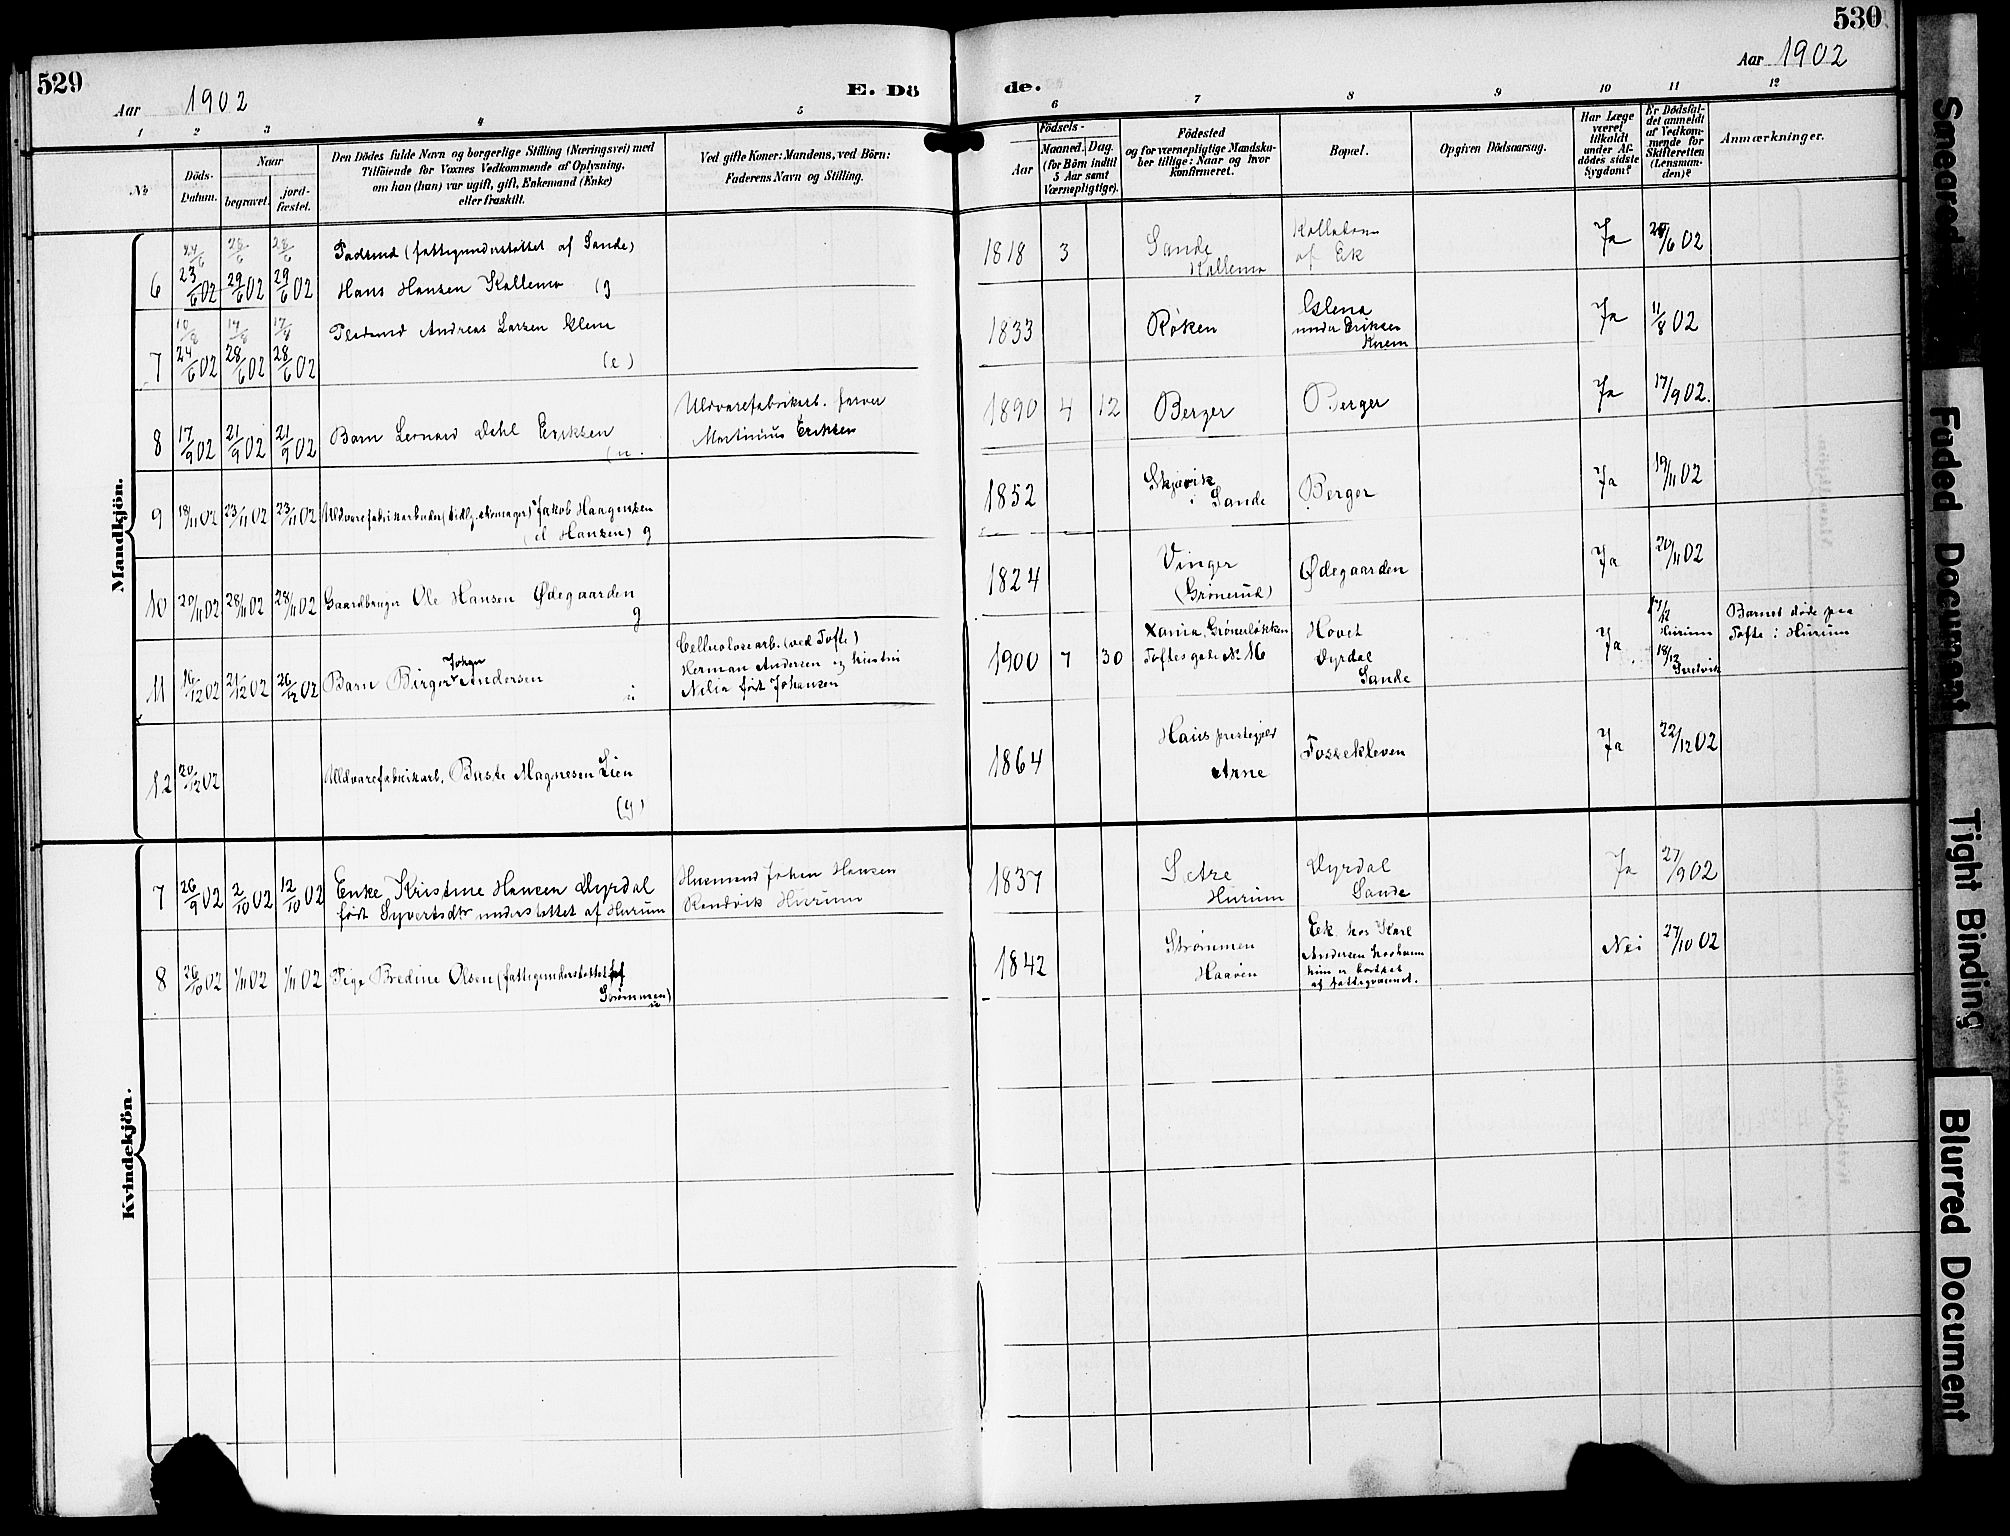 529
530
Aar 1902
E. Dö
de.
Aar 1902
1 2 3 4 5 6 7 8 9 10 11 12
№
Döds-Datum.
Naar
begravet.
jord-fæstet.
Den Dödes fulde Navn og borgerlige Stilling (Næringsvei) med
Tilföiende for Voxnes Vedkommende af Oplysning,
om hun (han) var ugift, gift, Enkemand (Enke)
eller fraskilt.
Ved gifte Koner: Mandens, ved Börn:
Faderens Navn og Stilling.
Födsels-
Aar
Maaned. Dag.
(for Börn indtil
5 Aar samt
Værnepligtige).
Födested
og for værnepligtige Mandsku-
ber tillige: Naar og hvor
Konfirmeret.
Bopæl.
Opgiven Dödsaarsag.
Har Læge
været
tilkaldt
under Af-
dödes sidste
Sygdom?
Er Dödsfal-
det anmeldt
af Vedkom-
mende for
Skifteretten
(Lensman-
den)?
Anmærkninger.
Mandkjön.
24/6 28/6 28/6
(fattigunderstøttet af Sande)
6 23/6 02 29/6 02 29/6 02 Hans Hansen Kollemo (g
1818 3 Sande
Kollemo
af Ek
Ja 28/6 02
10/8 14/8 17/8
Andreas Larsen
7 24/6 02 28/6 02 28/6 02 (e)
1833 Røken
under Eriksen
Ja 11/8 02
8 17/9 02 21/9 02 21/9 02 Barn Leonard Dehl Eriksen (u.
Uldvarefabrikarb. farver
Martinius Eriksen
1890 4 12 Berger Berger Ja 17/9 02.
9 18/11 02 23/11 02 23/11 02 Uldvarefabrikarbeider (tidlg. skomager) Jakob Haagensen
(el Hansen) g
1852 Skjævik
i Sande
Berger Ja 19/11 02
10 20/11 02 28/11 02 28/11 02 Gaardbruger Ole Hansen Ødegaarden
g
1824 Vinger
(Grønerud)
Ødegaarden Ja 20/11 02
11 16/12 02 21/12 02 26/12 02 Barn Birger Johan Andersen
u
Cellulosearb. (ved Tofte)
Herman Andersen og hustru
Nilia født Johansen
1900 7 30 Xania, Grønerløkken
Toftesgade № 16
Hovet
Dyrdal
Sande
Ja 17/12
Hurum
18/12
Svelvik
Barnet døde paa
Tofte i Hurum
12 20/12 02 Uldvarefabrikarb. Buste Magnesen Lien
(g)
1864 Haus prestegjeld
Arne
Fossekleven Ja 22/12 02
Kvindekjön.
7 26/9 02 2/10 02 12/10 02 Enke Kristine Hansen Dyrdal
født Syvertsdtr understøttet af Hurum
Husmand Johan Hansen
Hurum
1837 Sætre
Hurum
Dyrdal
Sande
Ja 27/9 02
8 26/10 02 1/11 02 1/11 02 Pige Bredine Olsen (fattigunderstøttet af
Strømmen)
u
1842 Strømmen
Haaven
Eek hos Karl
Andersen hvorhen
hun er bortsat
af fattigvæsenet.
Nei 27/10 02
Smeared
Faded Document
Tight Binding
Blurred Document